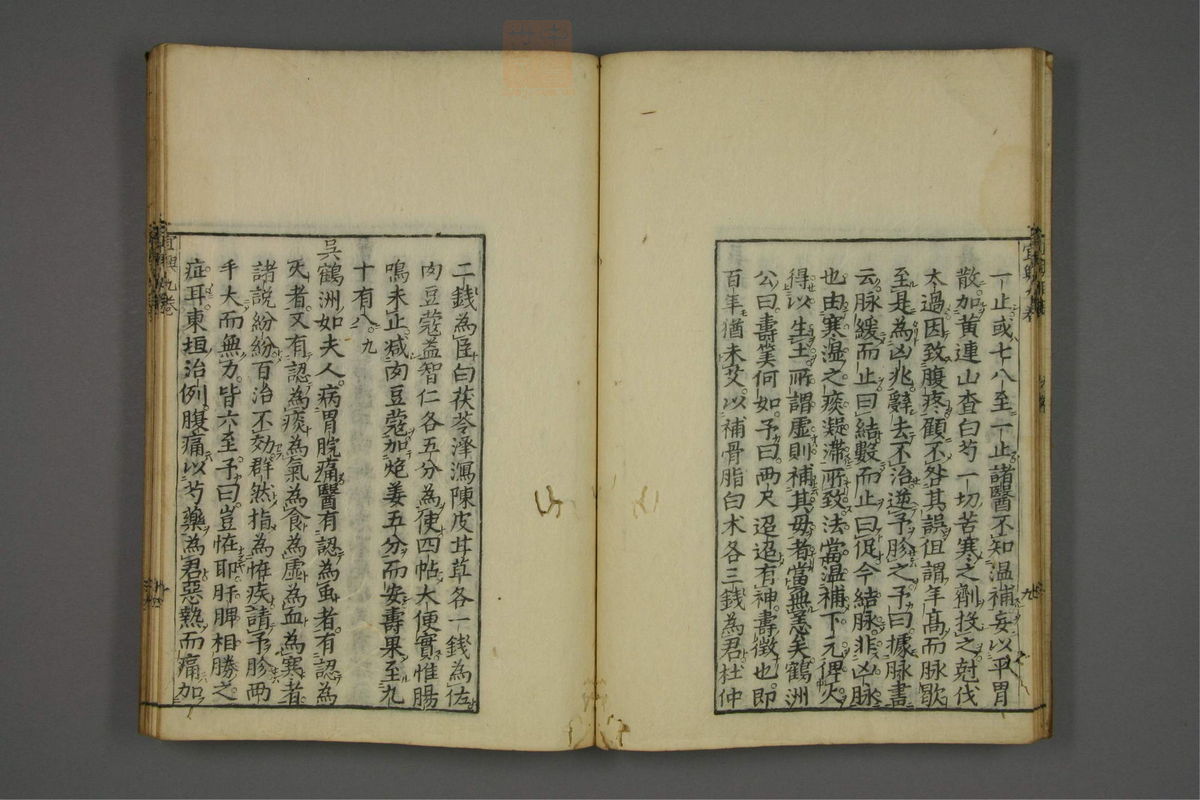 一止或七八至一止諸醫不知温補妄以平胃
散加黄連山査白芍一切苦寒之劑投之尅伐
太過因致腹疼顧不咎其誤但謂年髙而脉歇
至是為凶兆辭去不治逆予胗之予曰據脉畫
云脉緩而止曰結數而止曰促今結脉非凶脉
也由寒濕之痰凝滯所致法當温補下元俾火
得以生土所謂虚則補其母者當無恙矣鶴洲
公曰壽筭何如予曰兩尺迢迢有神壽徴也即
百年猶未艾以補骨脂白术各三錢為君杜仲
二錢為臣白茯苓澤瀉陳皮甘草各一錢為佐
肉豆蔻益智仁各五分為使四帖大便實惟腸
鳴未止减肉豆蔻加炮姜五分而安壽果至九
十有八
吳鶴洲如夫人病胃脘痛醫有認為虫者有認為
火者又有認為痰為氣為食為虚為血為寒者
諸說紛紛百治不効群然指為怪疾請予胗兩
手大而無力皆六至予曰豈怪耶肝脾相勝之
症耳東垣治例腹痛以芍藥為君惡熱而痛加